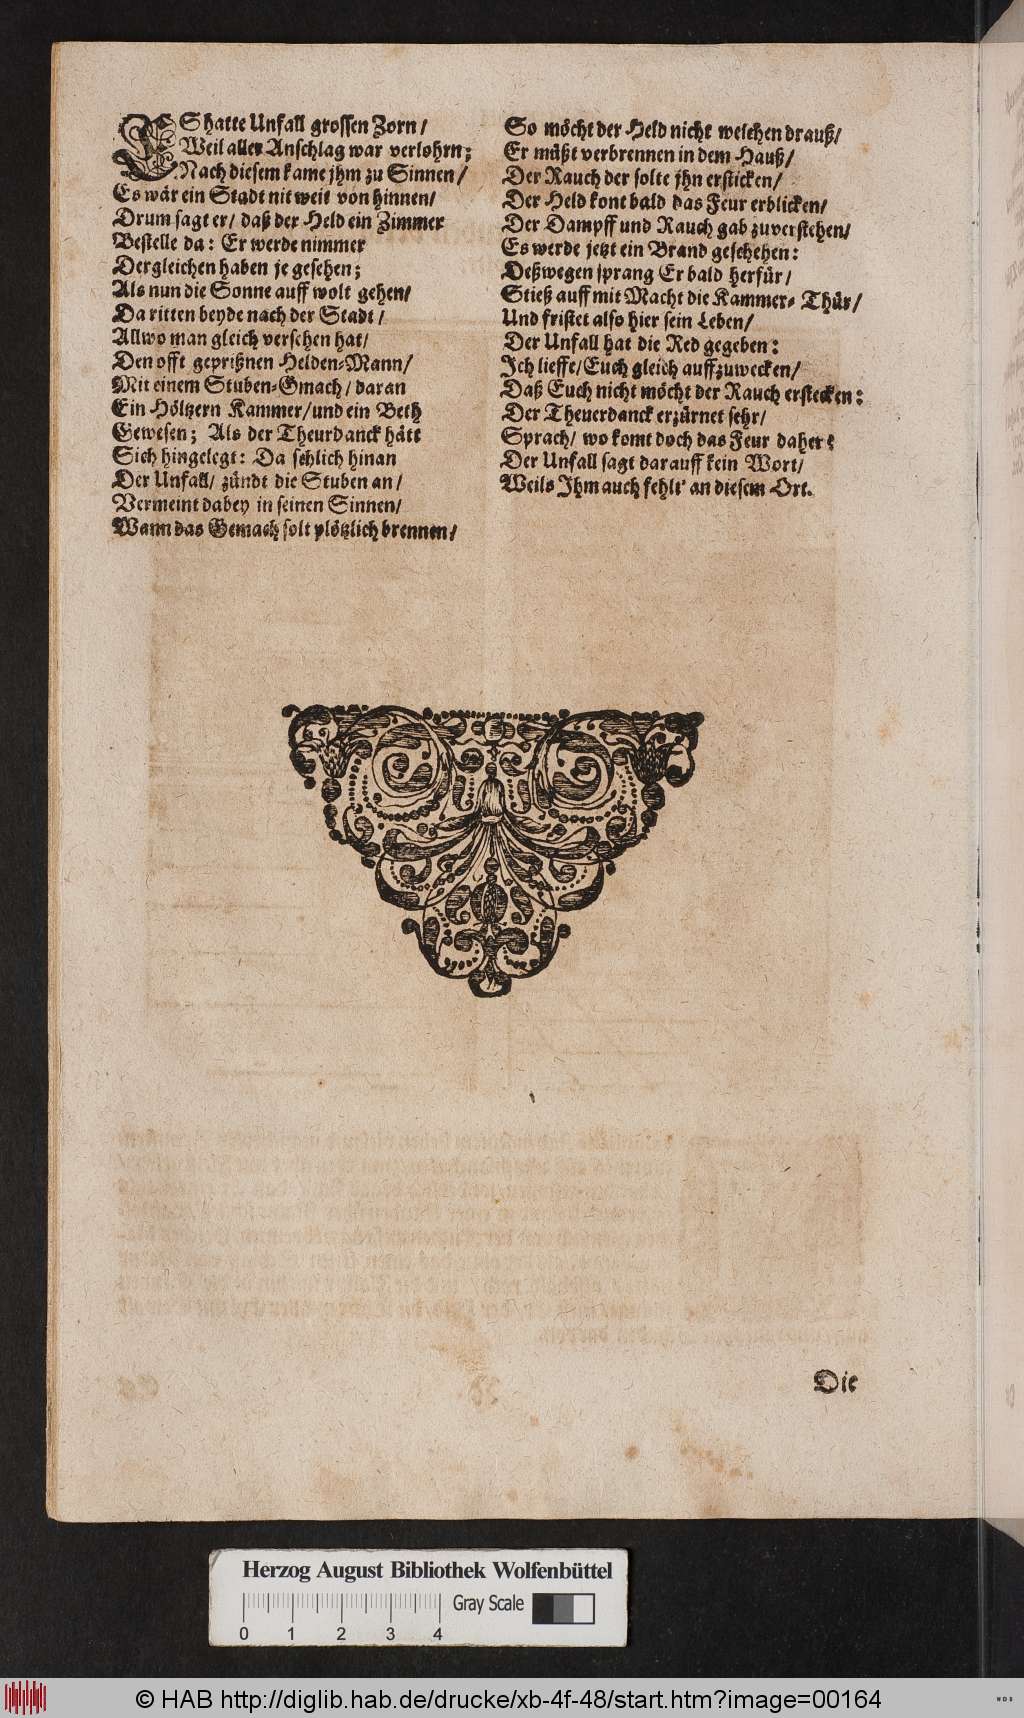 ES hatte Unfall grossen Zorn/
Weil aller Anschlag war verlohrn;
Nach diesem kame jhm zu Sinnen/
Es wär ein Stadt nit weit von hinnen/
Drum sagt er/ daß der Held ein Zimmer
Bestelle da: Er werde nimmer
Dergleichen haben je gesehen;
Als nun die Sonne auff wolt gehen/
Da ritten beyde nach der Stadt/
Allwo man gleich versehen hat/
Den offt geprißnen Helden-Mann/
Mit einem Stuben-Gmach/ daran
Ein Höltzern Kammer/ und ein Beth
Gewesen; Als der Theurdanck hätt
Sich hingelegt: Da schlich hinan
Der Unfall/ zündt die Stuben an/
Vermeint dabey in seinen Sinnen/
Wann das Gemach solt plötzlich brennen/
So möcht der Held nicht weichen drauß/
Er müßt verbrennen in dem Hauß/
Der Rauch der solte jhn ersticken/
Der Held kont bald das Feur erblicken/
Der Dampff und Rauch gab zuverstehen/
Es werde jetzt ein Brand geschehen:
Deßwegen sprang Er bald herfür/
Stieß auff mit Macht die Kammer-Thür/
Und fristet also hier sein Leben/
Der Unfall hat die Red gegeben:
Ich lieffe/ Euch gleich auffzuwecken/
Daß Euch nicht möcht der Rauch erstecken:
Der Theuerdanck erzürnet sehr/
Sprach/ wo komt doch das Feur daher?
Der Unfall sagt darauff kein Wort/
Weils Ihm auch fehlt' an diesem Ort.
Die
Herzog August Bibliothek Wolfenbüttel
Gray Scale
0 1 2 3 4
© HAB http://diglib.hab.de/drucke/xb-4f-48/start.htm?image=00164